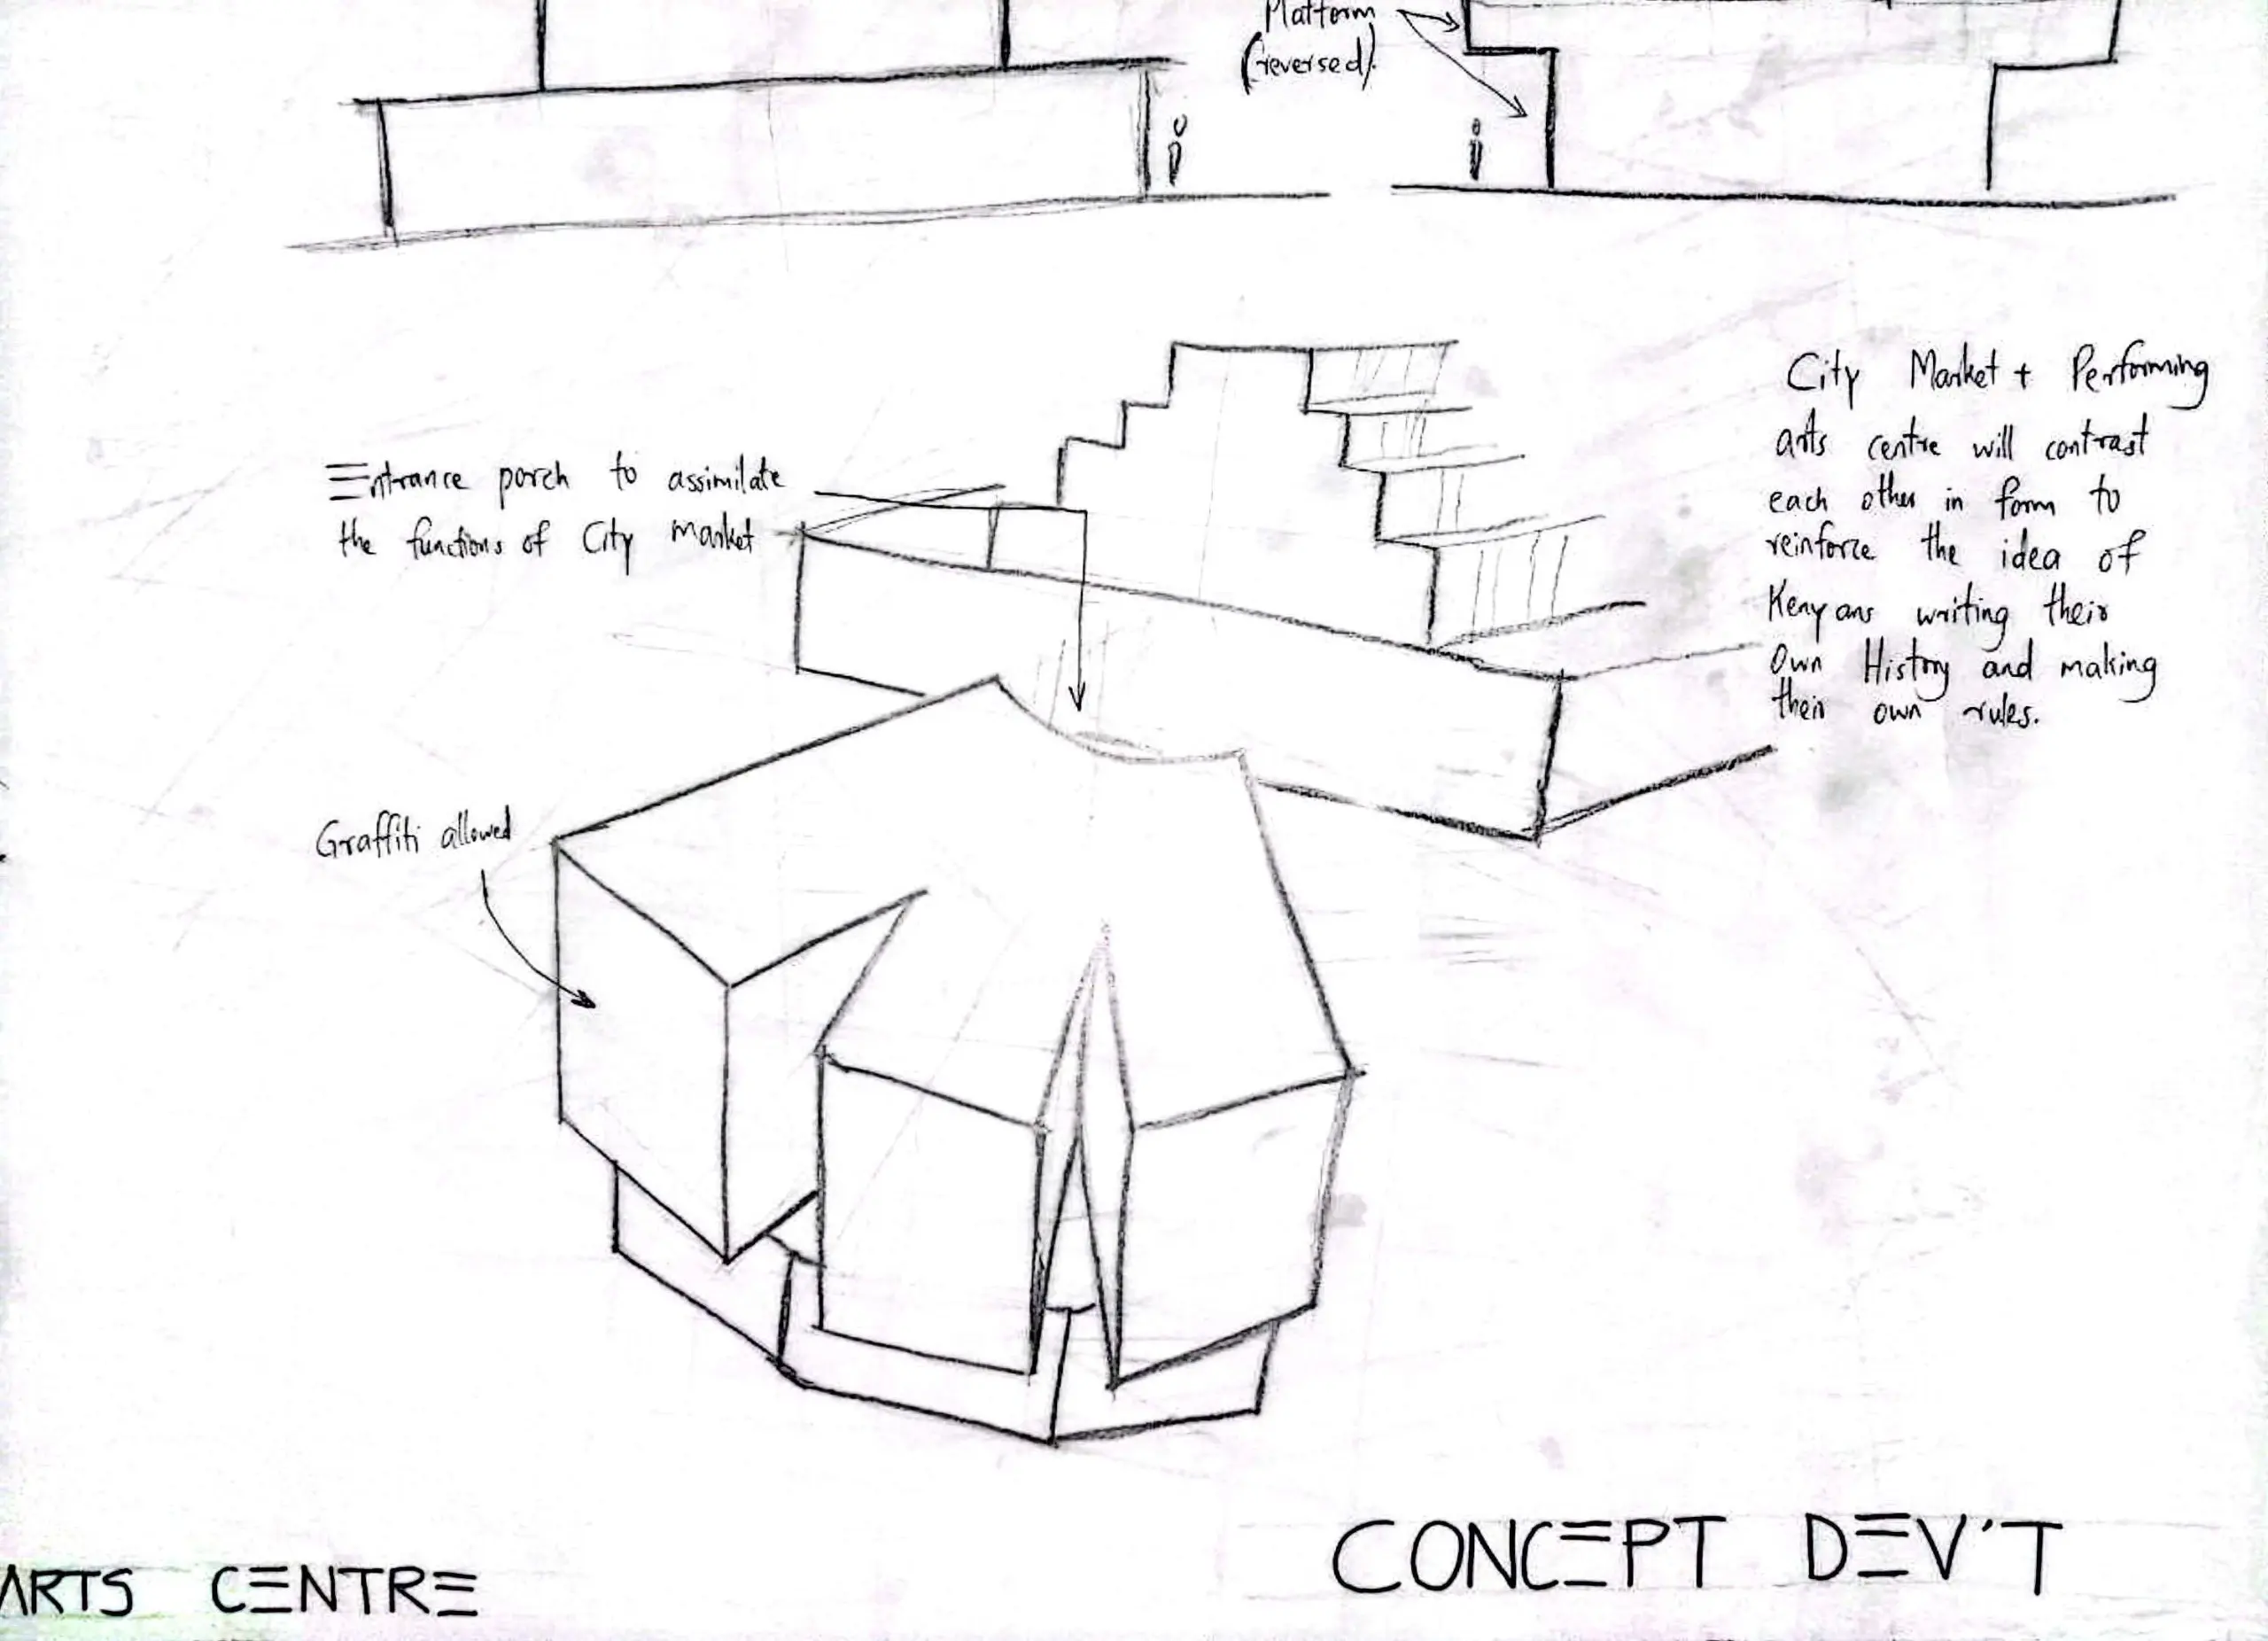 Platform
(reversed).
City Market + Performing
arts centre will contrast
each other in form to
reinforce the idea of
Kenyans writing their
Own History and making
their own rules.
Entrance porch to assimilate
the functions of City Market
Graffiti allowed
CONCEPT DEV'T
ARTS CENTRE